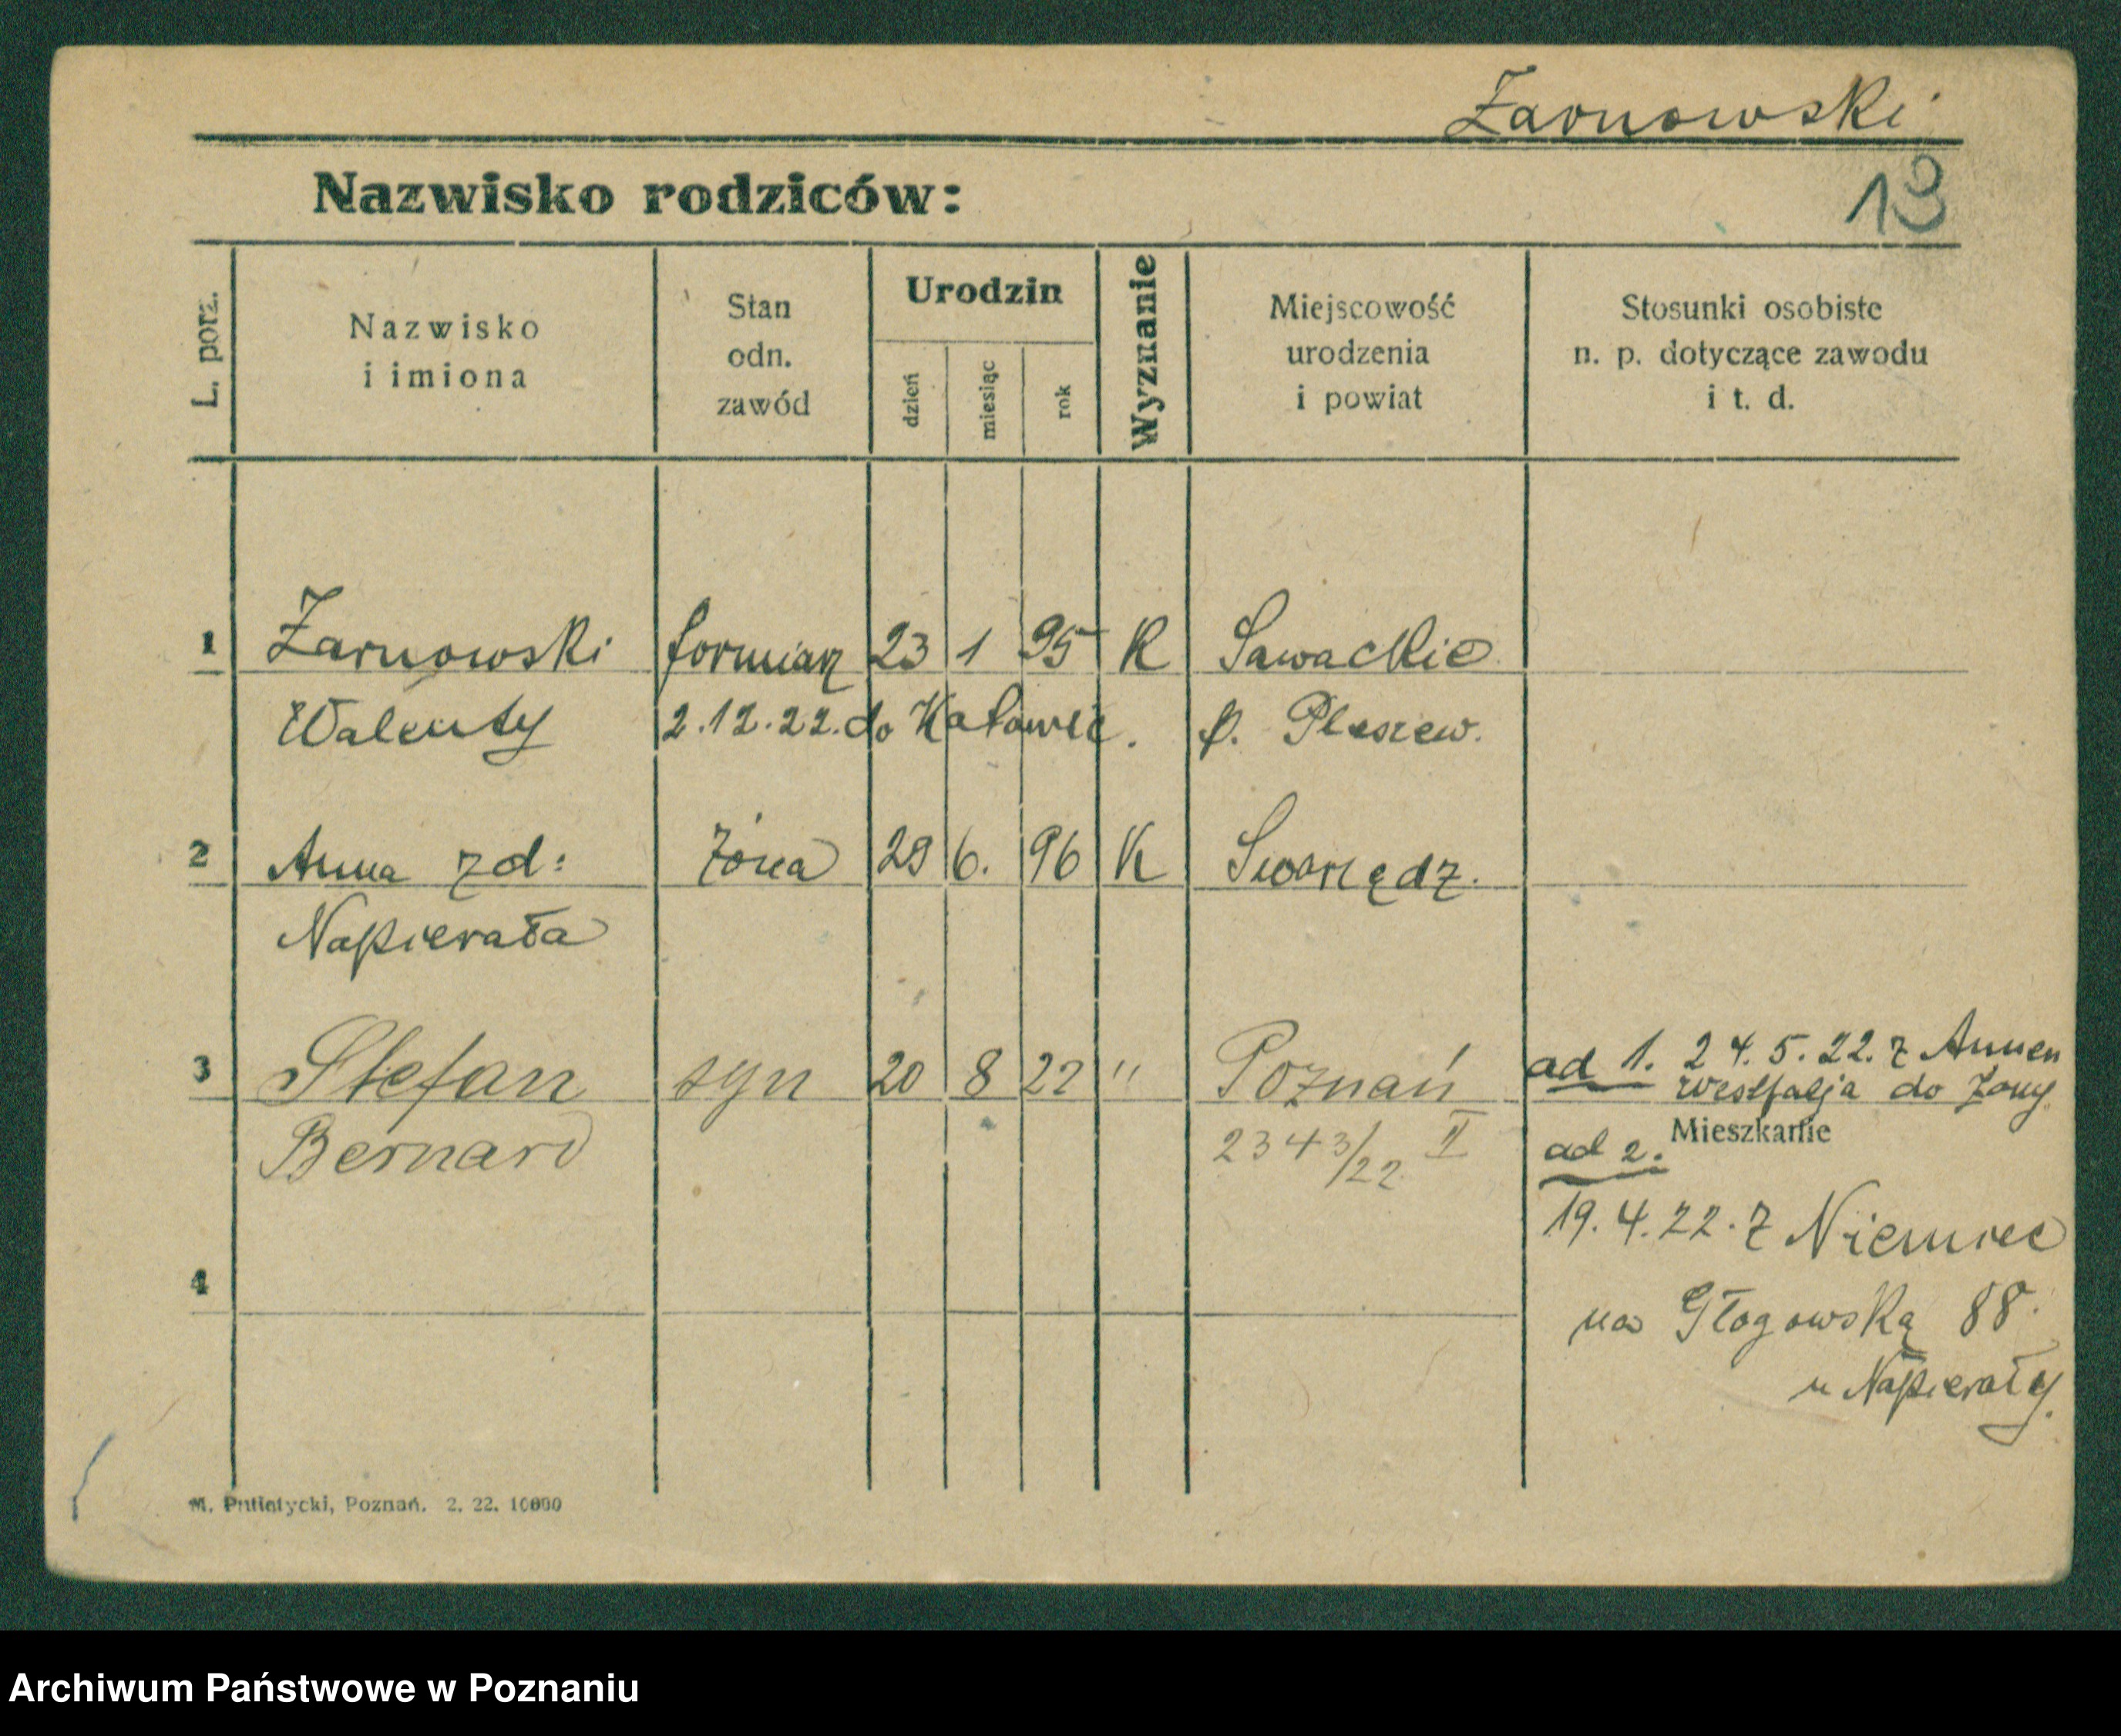 Żarnowski
Nazwisko rodziców:
13
L. porz.
Nazwisko
i imiona
Stan
odn.
zawód
Urodzin
dzień
miesiąc
rok
Wyznanie
Miejscowość
urodzenia
i powiat
Stosunki osobiste
n. p. dotyczące zawodu
i t. d.
1 Żarnowski formiarz 23 1 95 K Sawackie
Walenty 2.12.22. do Katowic. p. Pleszew.
2 Anna zd: żona 29 6. 96 K Swarzędz.
Napierała
3 Stefan syn 20 8 22 " Poznań
Bernard 2343/22 II
ad 1. 24.5.22. z Annen
Westfalja do żony
Mieszkanie
ad 2.
19.4.22. z Niemiec
na Głogowską 88.
u Napierały.
4
M. Putiatycki, Poznań. 2. 22. 10000
Archiwum Państwowe w Poznaniu